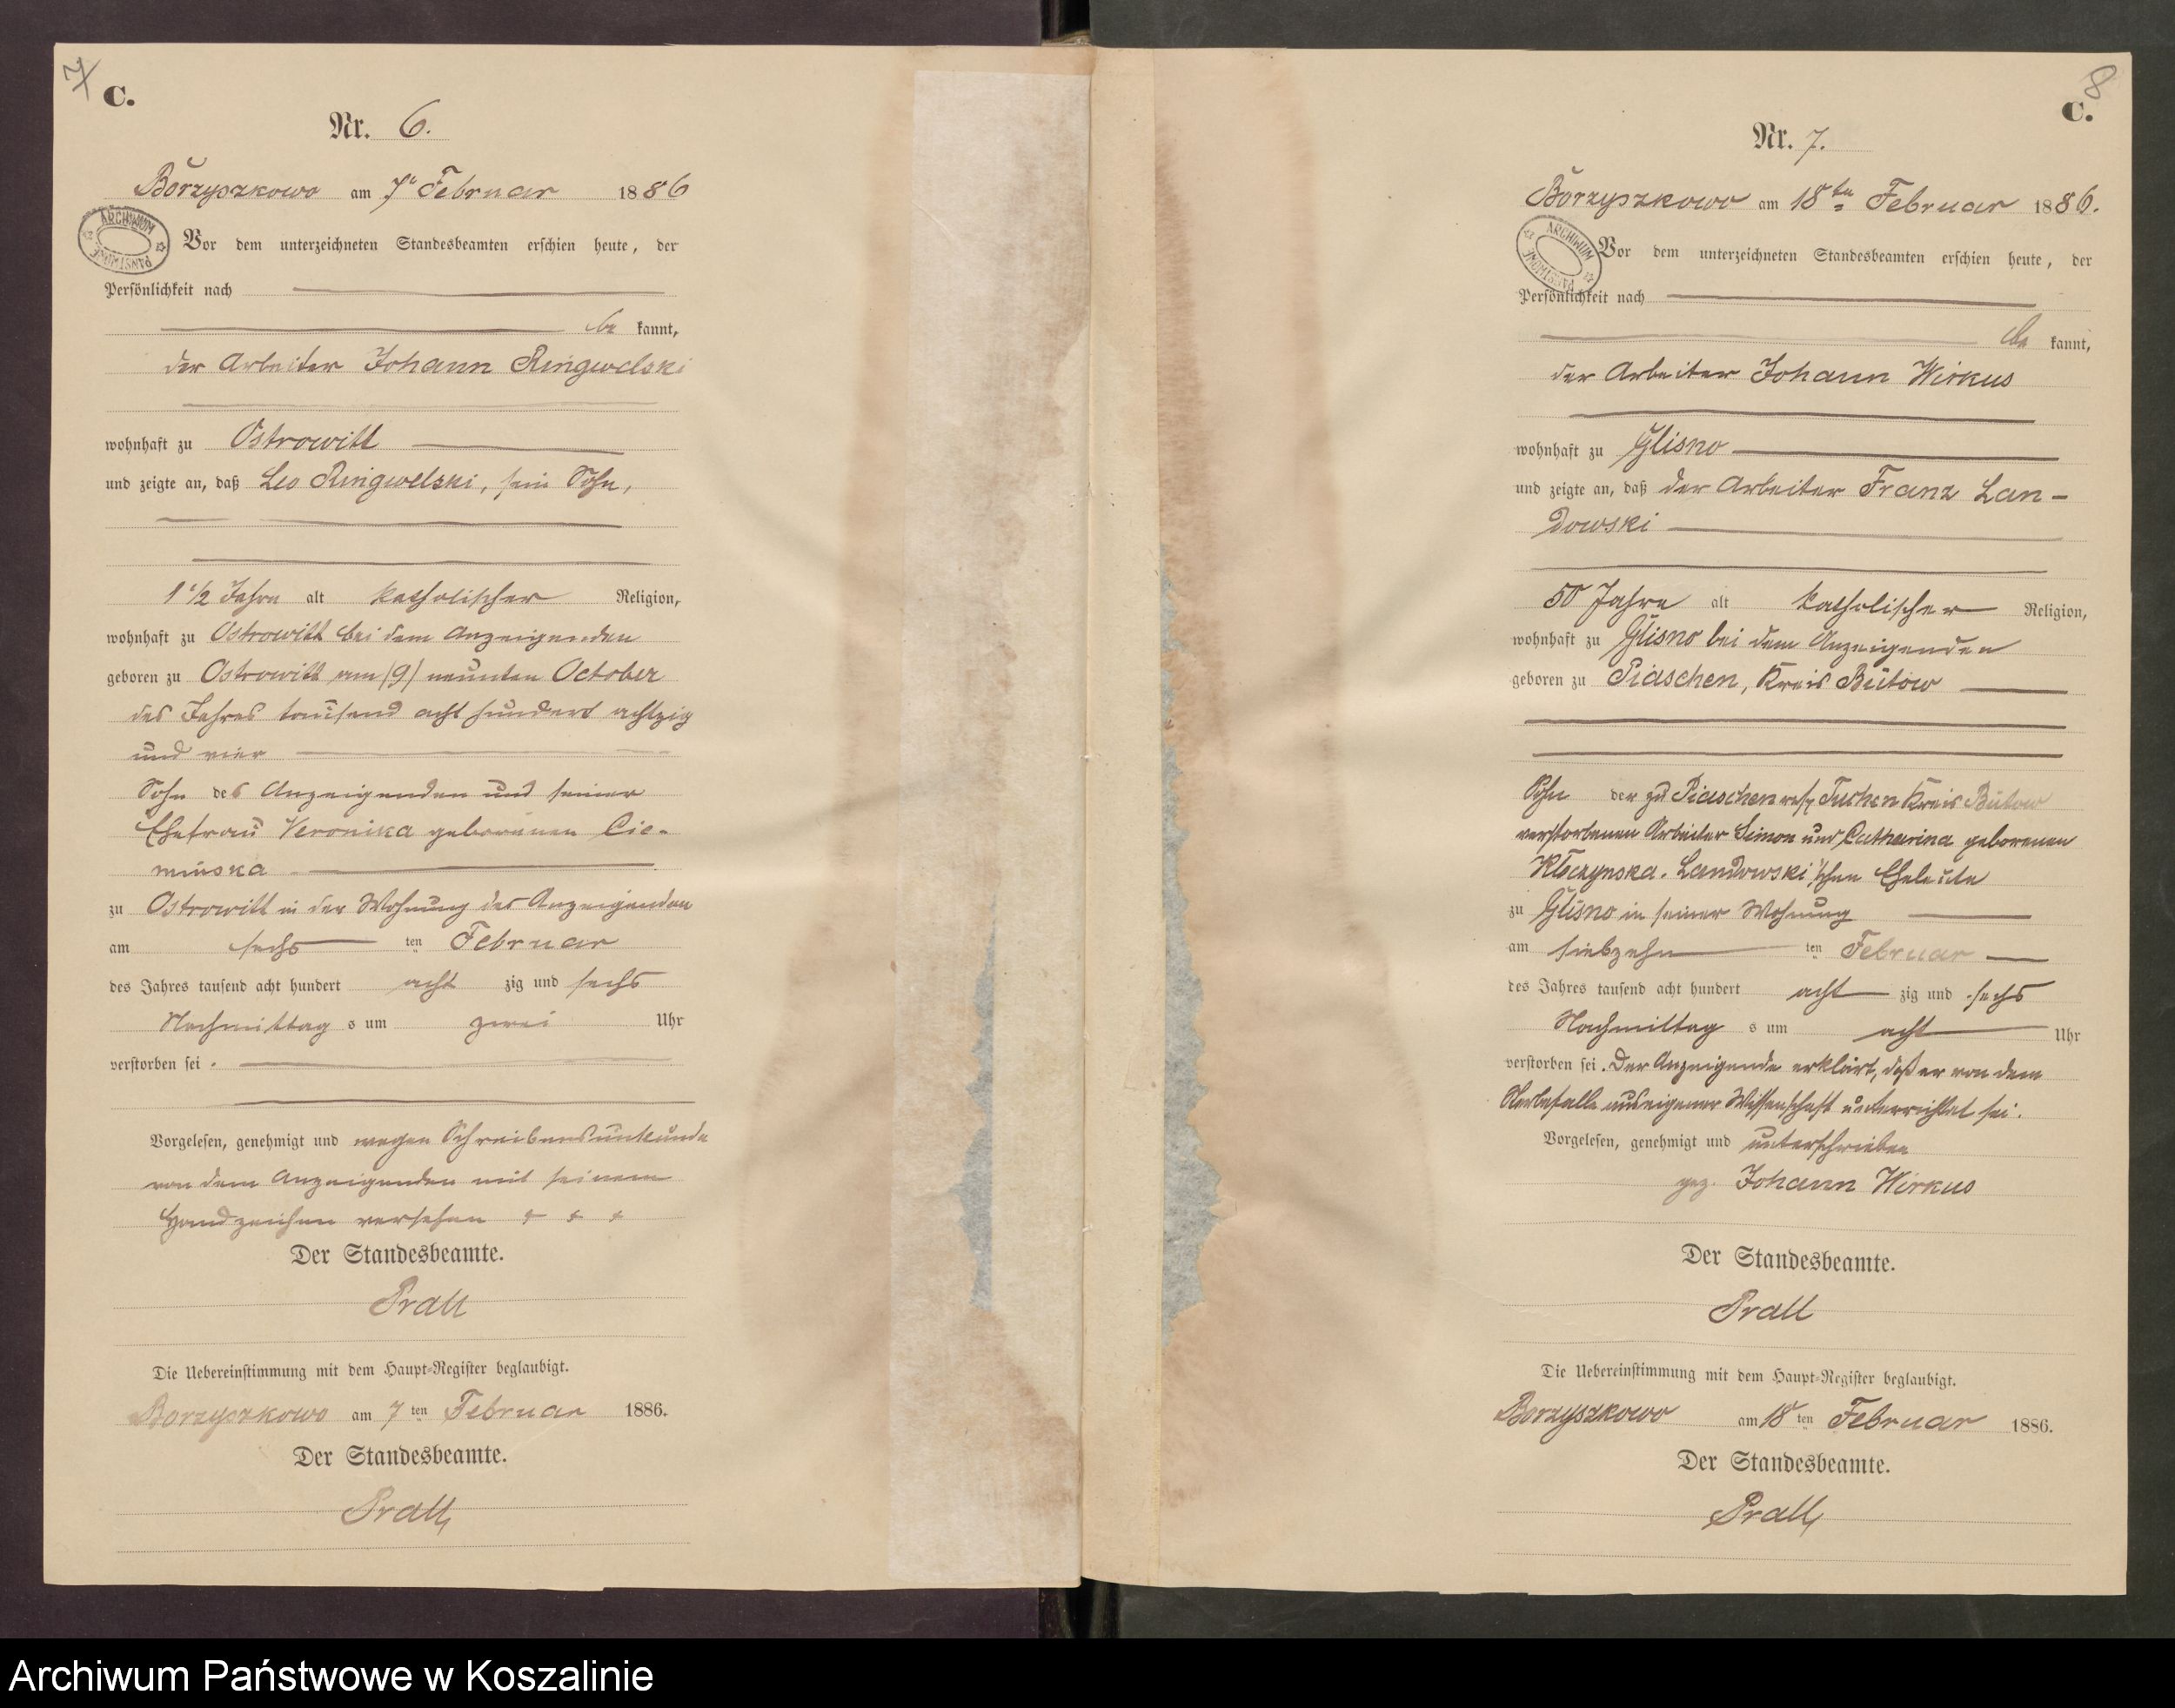 7
C.
Nr. 6.
Borzyszkowo am 7ᵗ Februar 1886
ARCHIWUM PAŃSTWOWE
Vor dem unterzeichneten Standesbeamten erschien heute, der
Persönlichkeit nach
be kannt,
der Arbeiter Johann Ringwelski
wohnhaft zu Ostrowitt
und zeigte an, daß Leo Ringwelski, sein Sohn,
1 1/2 Jahre alt katholischer Religion,
wohnhaft zu Ostrowitt bei dem Anzeigenden
geboren zu Ostrowitt am (9) neunten October
des Jahres tausend acht hundert achtzig
und vier
Sohn des Anzeigenden und seiner
Ehefrau Veronika geborenen Cie-
minska
zu Ostrowitt in der Wohnung des Anzeigenden
am sechs ten Februar
des Jahres tausend acht hundert acht zig und sechs
Nachmittag s um zwei Uhr
verstorben sei.
Vorgelesen, genehmigt und wegen Schreibensunkunde
von dem Anzeigenden mit seinem
Handzeichen versehen + + +
Der Standesbeamte.
Prall
Die Uebereinstimmung mit dem Haupt-Register beglaubigt.
Borzyszkowo am 7 ten Februar 1886.
Der Standesbeamte.
Prall
8
C.
Nr. 7.
Borzyszkowo am 18ten Februar 1886.
ARCHIWUM PAŃSTWOWE
Vor dem unterzeichneten Standesbeamten erschien heute, der
Persönlichkeit nach
be kannt,
der Arbeiter Johann Wirkus
wohnhaft zu Glisno
und zeigte an, daß der Arbeiter Franz Lan-
dowski
50 Jahre alt katholischer Religion,
wohnhaft zu Glisno bei dem Anzeigenden
geboren zu Piaschen, Kreis Bütow
Sohn der zu Piaschen resp Tuchen Kreis Bütow
verstorbenen Arbeiter Simon und Catharina geborenen
Kloczynska. Landowski'schen Eheleute
zu Glisno in seiner Wohnung
am siebzehn ten Februar
des Jahres tausend acht hundert acht zig und sechs
Nachmittag s um acht Uhr
verstorben sei. Der Anzeigende erklärt, daß er von dem
Sterbefalle aus eigener Wissenschaft unterrichtet sei.
Vorgelesen, genehmigt und unterschrieben
gez. Johann Wirkus
Der Standesbeamte.
Prall
Die Uebereinstimmung mit dem Haupt-Register beglaubigt.
Borzyszkowo am 18 ten Februar 1886.
Der Standesbeamte.
Prall
Archiwum Państwowe w Koszalinie